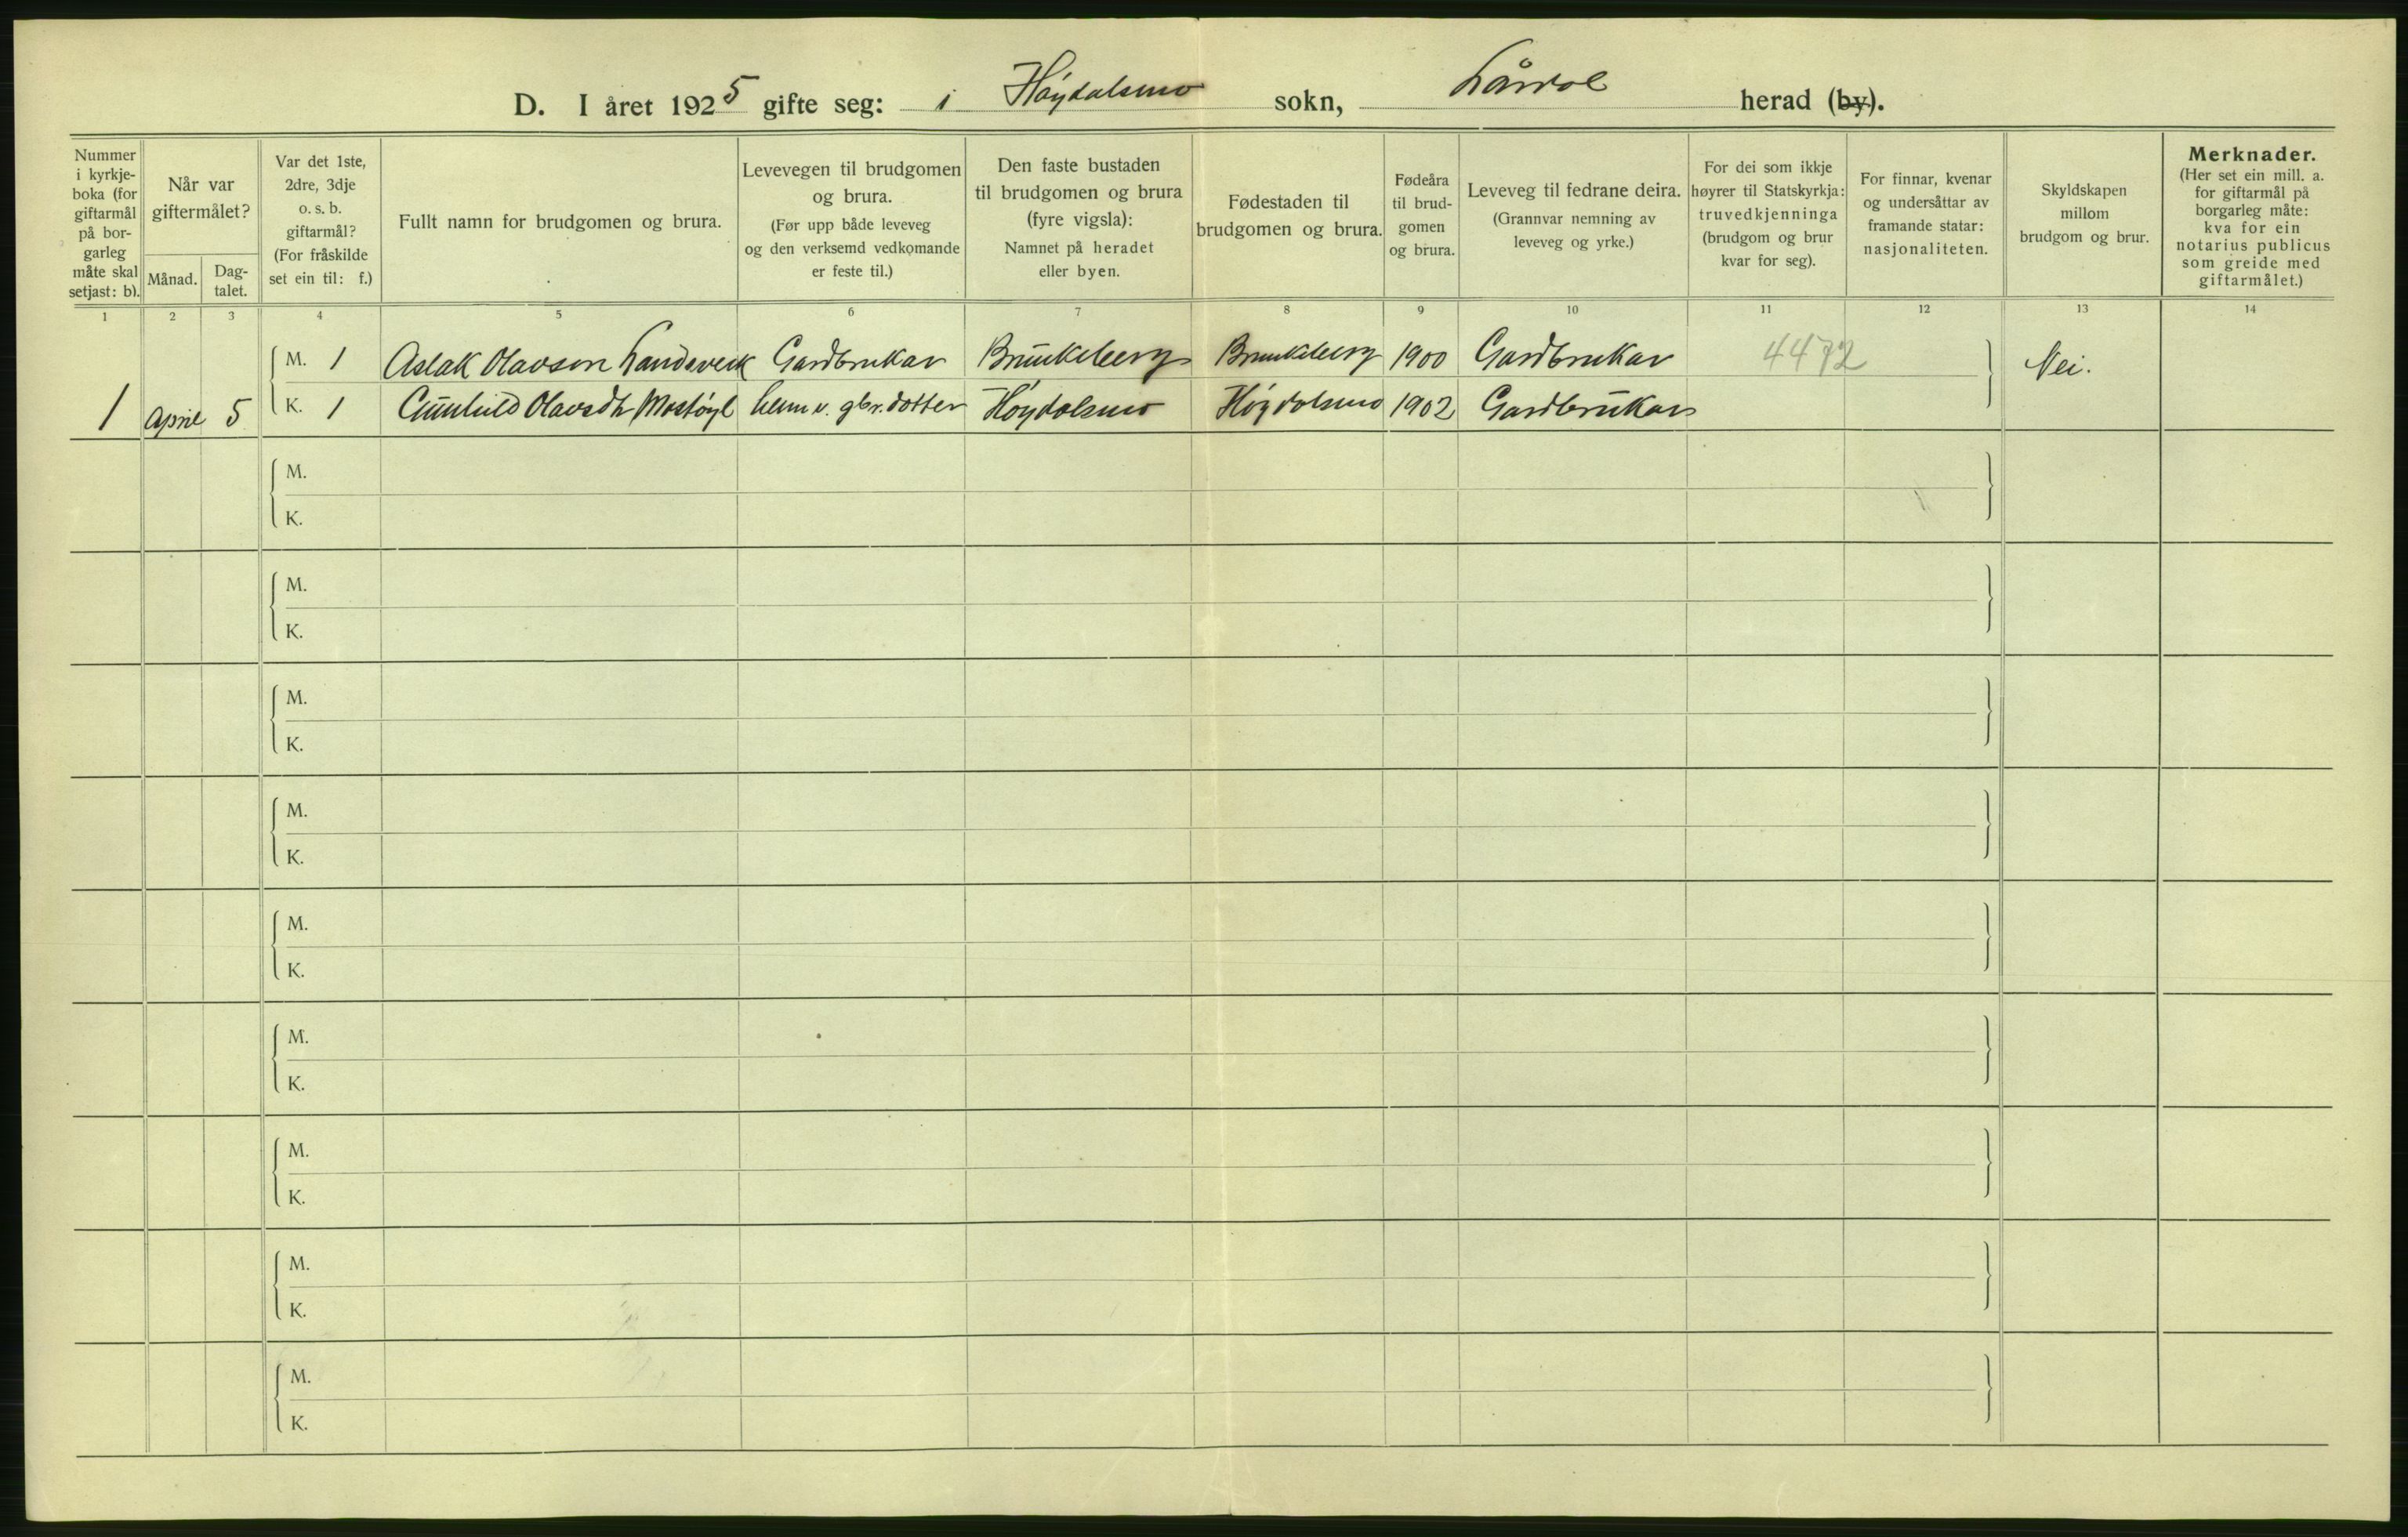 D. I året 1925 gifte seg: i Høydalsmo sokn, Lårdal herad (by).
Nummer i kyrkje-boka (for giftarmål på bor-garleg måte skal setjast: b).
Når var giftermålet?
Månad.
Dag-talet.
Var det 1ste, 2dre, 3dje o. s. b. giftarmål? (For fråskilde set ein til: f.)
Fullt namn for brudgomen og brura.
Levevegen til brudgomen og brura. (Før upp både leveveg og den verksemd vedkomande er feste til.)
Den faste bustaden til brudgomen og brura (fyre vigsla): Namnet på heradet eller byen.
Fødestaden til brudgomen og brura.
Fødeåra til brud-gomen og brura.
Leveveg til fedrane deira. (Grannvar nemning av leveveg og yrke.)
For dei som ikkje høyrer til Statskyrkja: truvedkjenninga (brudgom og brur kvar for seg).
For finnar, kvenar og undersåttar av framande statar: nasjonaliteten.
Skyldskapen millom brudgom og brur.
Merknader. (Her set ein mill. a. for giftarmål på borgarleg måte: kva for ein notarius publicus som greide med giftarmålet.)
1 2 3 4 5 6 7 8 9 10 11 12 13 14
M. 1 Aslak Olavson Landsverk Gardbrukar Brunkeberg Brunkeberg 1900 Gardbrukar 4472 Nei.
1 April 5 K. 1 Gunhild Olavsdtr Mostøyl heim v. gbr. dotter Høydalsmo Høydalsmo 1902 Gardbrukar
M.
K.
M.
K.
M.
K.
M.
K.
M.
K.
M.
K.
M.
K.
M.
K.
M.
K.